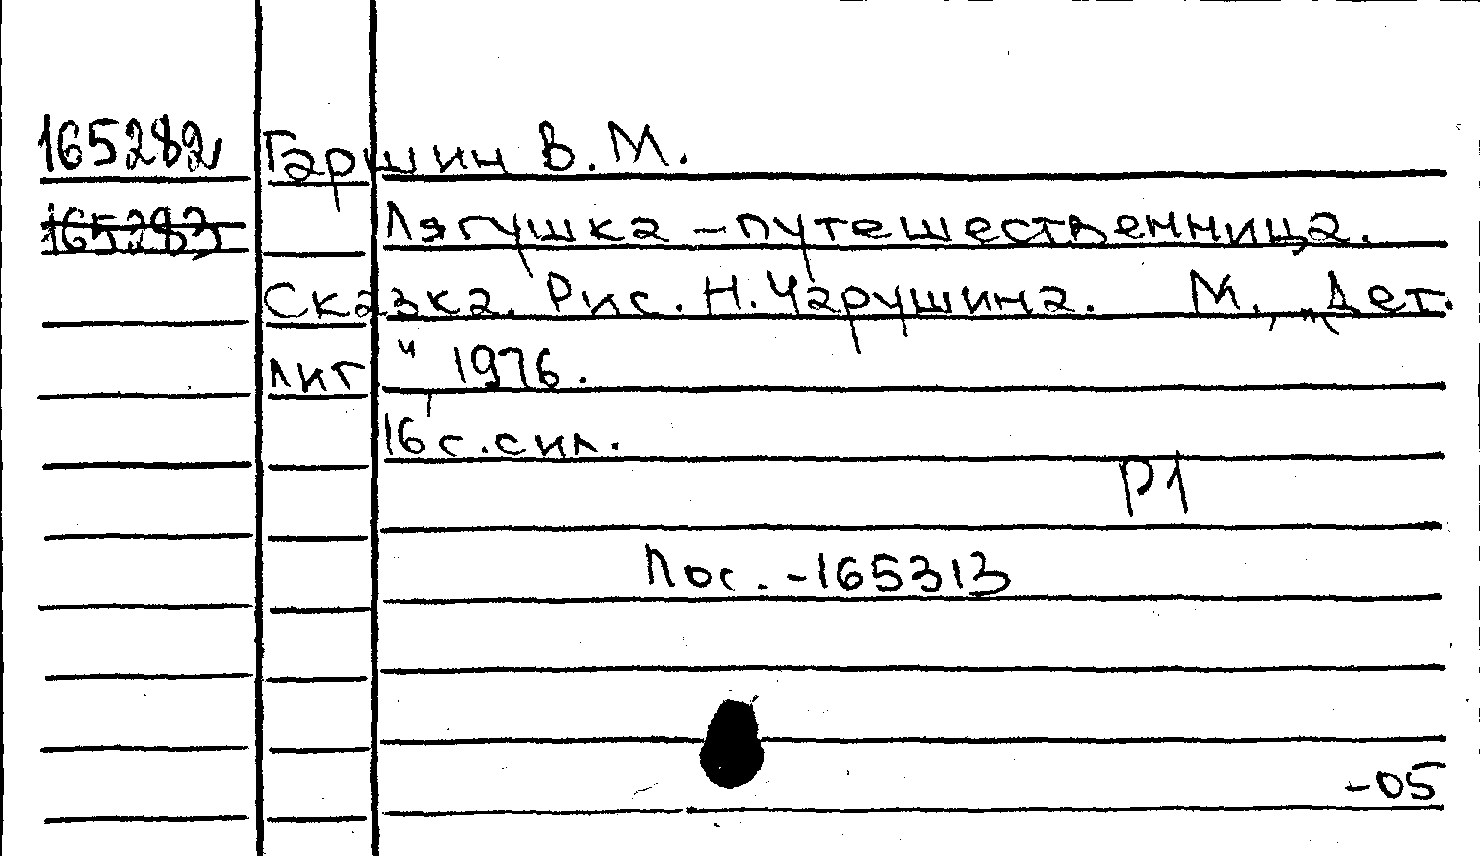 165282 Гаршин В. М.
165283 Лягушка-путешественница.
Сказка. Рис. Н. Чарушина. М., „Дет.
лит“ 1976.
16 с. с ил.
Р1
Пос. -165313
-05